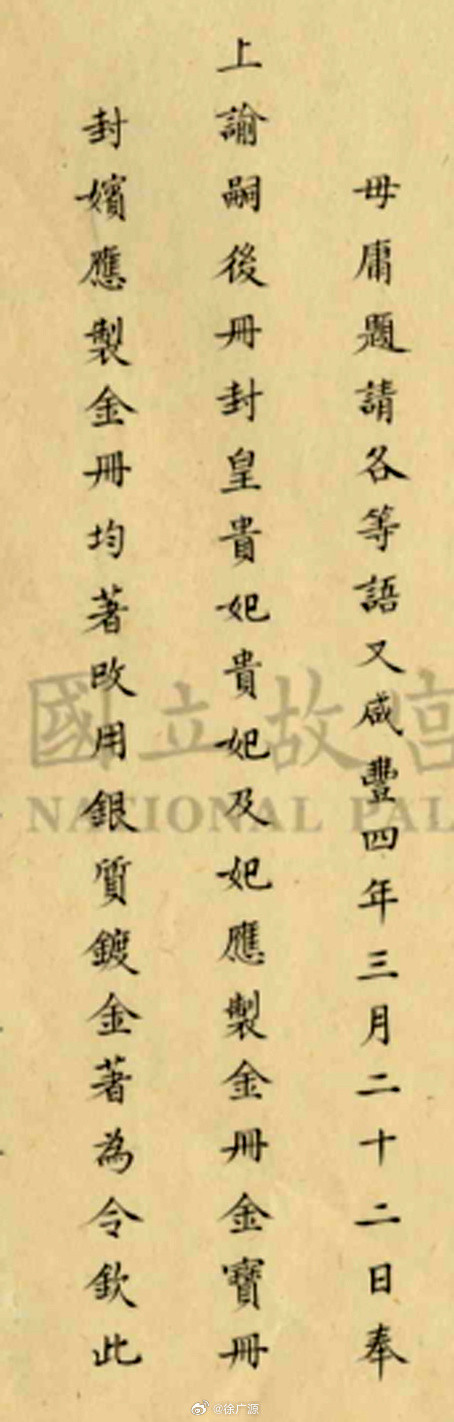 毋庸題請各等語又咸豐四年三月二十二日奉
上諭嗣後冊封皇貴妃貴妃及妃應製金冊金寶冊
封嬪應製金冊均著改用銀質鍍金著為令欽此
國立故宮
NATIONAL PAL
@徐广源